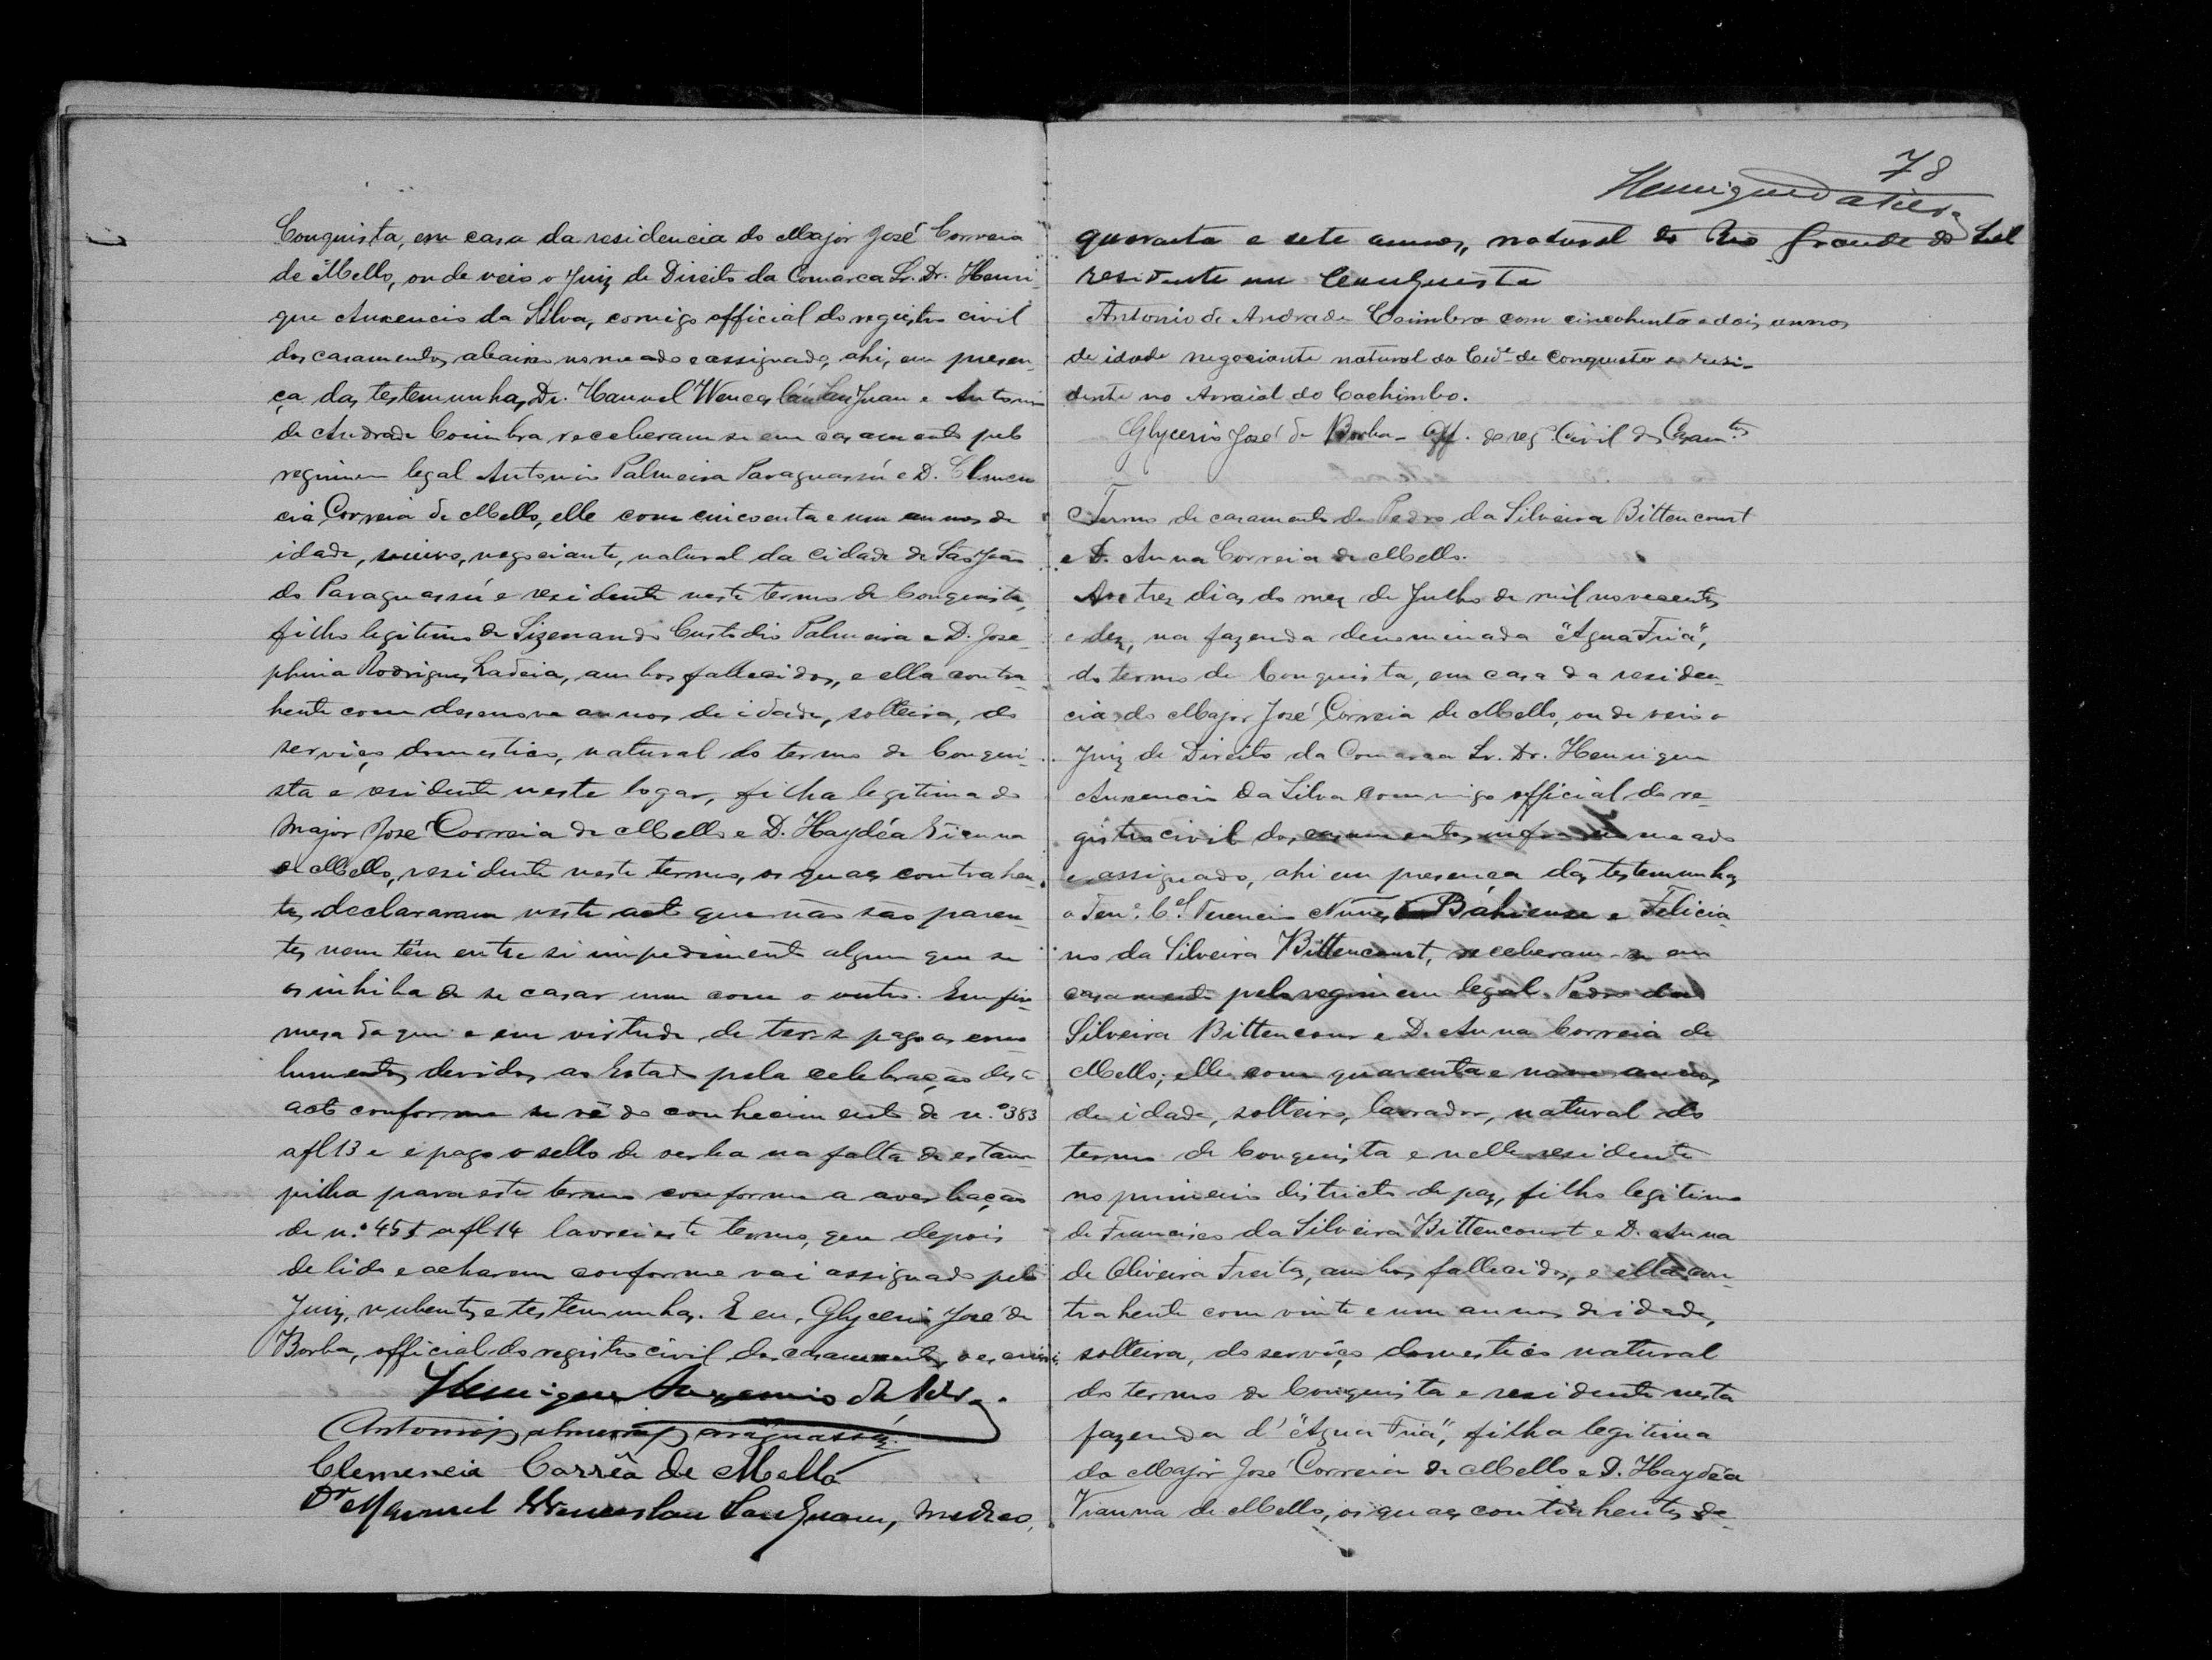 Conquista, em casa da residencia do Major José Correia
de Mello, onde veio o Juiz de Direito da Comarca Sr. Dr. Henri-
que Auxencio da Silva, comigo official do registro civil
dos casamentos abaixo nomeado e assignado, ahi, em presen-
ça das testemunhas Dr. Manuel Wenceslau e Antonio
de Andrade Coimbra receberam se em casamento pelo
regimen legal Antonio Palmeira Paraguassú e D. Clemen
cia Correia de Mello, elle com cincoenta e um annos de
idade, viuvo, negociante, natural da cidade de São João
do Paraguassú e residente neste termo de Conquista,
filho legitimo de Sizenando Custodio Palmeira e D. Jose-
phina Rodrigues Ladeia, ambos fallecidos, e ella contra-
hente com desenove annos de idade, solteira, do
serviço domestico, natural do termo de Conqui-
sta e residente neste logar, filha legitima do
Major José Correia de Mello e D. Haydéa Vianna
de Mello, residente neste termo, os quaes contrahen-
tes declararam neste acto que não são paren-
tes nem têm entre si impedimento algum que se
os inhiba de se casar um com o outro. Em fir-
mesa do que e em virtude de ter-se pago os emo
lumentos devidos ao Estado pela celebração deste
acto conforme se vê do conhecimento de n.º 383
a fl 13 e e pago o sello de verba na falta de estam-
pilha para este termo conforme a averbação
de n.º 455 a fl 14 lavrei este termo, que depois
de lido e acharem conforme vai assignado pelo
Juiz, nubentes e testemunhas. E eu, Glycerio José de
Borba, official do registro civil dos casamentos o escrivi
Henrique Auxencio da Silva.
Antonio Palmeira Paraguassú.
Clemencia Corrêa de Mello
Dr Manuel Wenceslau, medico,
78
Henrique da Silva
quarenta e sete annos, natural do Rio Grande do Sul
residente em Conquista
Antonio de Andrade Coimbra com cincohenta e dois annos
de idade negociante natural da Cide de Conquista e resi-
dente no Arraial do Cachimbo.
Glycerio José de Borba - Off. do reg. Civil dos Casamtos
Termo de casamento de Pedro da Silveira Bittencourt
e D. Anna Correia de Mello.
Aos tres dias do mez de Julho de mil novecentos
e dez, na fazenda denominada "Agua Fria",
do termo de Conquista, em casa da residen-
cia do Major José Correia de Mello, onde veio o
Juiz de Direito da Comarca Sr. Dr. Henrique
Auxencio da Silva commigo official do re-
gistro civil dos casamentos infra nomeado
e assignado, ahi em presença das testemunhas
o Tene. Cel. Terencio Nunes Bahiense e Felicia-
no da Silveira Bittencourt, receberam-se em
casamento pelo regimem legal Pedro da
Silveira Bittencour e D. Anna Correia de
Mello; elle com quarenta e nove annos
de idade, solteiro, lavrador, natural do
termo de Conquista e nelle residente
no primeiro districto de paz, filho legitimo
de Francisco da Silveira Bittencourt e D. Anna
de Oliveira Freitas, ambos fallecidos, e ella con-
trahente com vinte e um annos de idade,
solteira, do serviço domestico natural
do termo de Conquista e residente nesta
fazenda d' "Agua Fria", filha legitima
do Major José Correia de Mello e D. Haydéa
Vianna de Mello, os quaes contrahentes de-